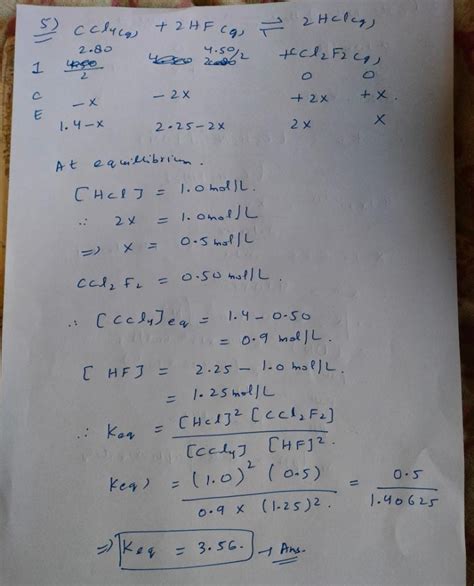 5) CCl4(g) + 2HF(g) ⇌ 2HCl(g)
+ CCl2F2(g)
I 2.80/2 4.50/2 0 0
C -x -2x +2x +x.
E 1.4-x 2.25-2x 2x x
At equilibrium.
[HCl] = 1.0 mol/L.
∴ 2x = 1.0 mol/L
=> x = 0.5 mol/L
CCl2F2 = 0.50 mol/L.
∴ [CCl4]eq = 1.4 - 0.50
= 0.9 mol/L.
[HF] = 2.25 - 1.0 mol/L
= 1.25 mol/L
∴ Keq = [HCl]² [CCl2F2] / [CCl4] [HF]².
Keq) = (1.0)² (0.5) / 0.9 × (1.25)². = 0.5 / 1.40625
=> Keq = 3.56. → Ans.